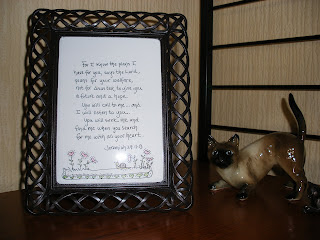 For I know the plans I
have for you, says the Lord...
plans for your welfare,
not for disaster, to give you
a future and a hope.
You will call to me... and
I will listen to you...
You will seek me and
find me when you search
for me with all your heart.
Jeremiah 29:11-13